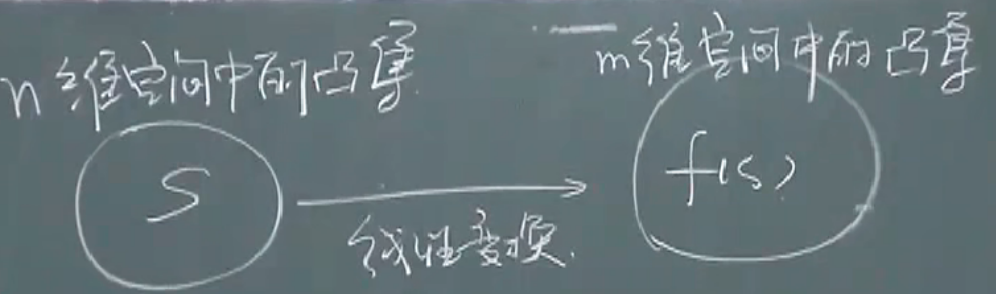 n维空间中的凸集
m维空间中的凸集
S
f(s)
线性变换.